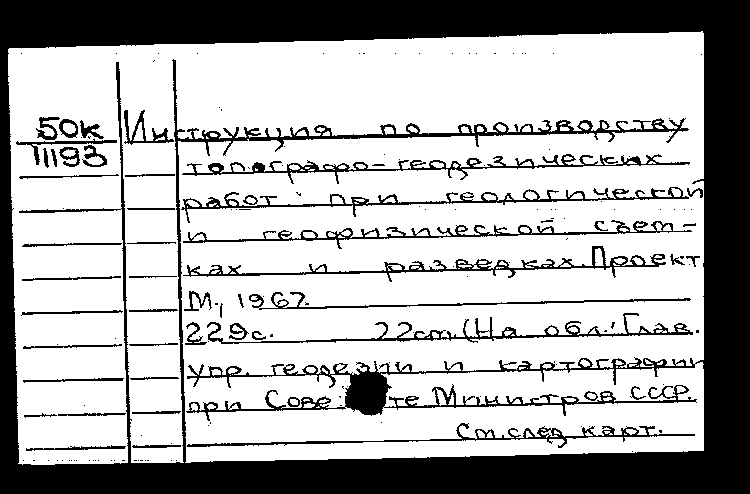 50к Инструкция по производству
11193 топографо-геодезических
работ при геологической
и геофизической съем-
ках и разведках. Проект.
М., 1967.
229с. 22см. (На обл.: Глав.
упр. геодезии и картографии
при Сове те Министров СССР.
См. след. карт.